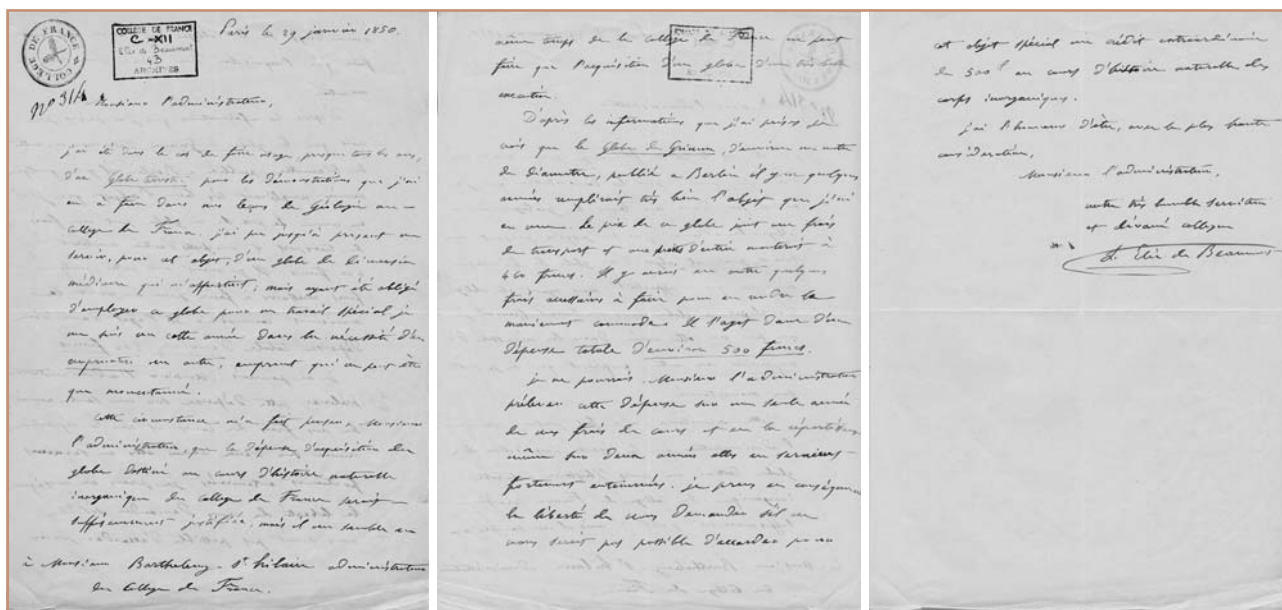 COLLEGE DE FRANCE
COLLÈGE DE FRANCE
C-XII
Elie de Beaumont
43
ARCHIVES
Paris le 29 janvier 1850.
Monsieur l'administrateur,
j'ai été dans le cas de faire usage, presque tous les ans,
d'un globe terrestre pour les démonstrations que j'ai
eu à faire dans mes leçons de Géologie au
collège de France. j'ai pu jusqu'à présent me
servir, pour cet objet, d'un globe de dimension
médiocre qui m'appartient; mais ayant été obligé
d'employer ce globe pour un travail spécial je
me suis vu cette année dans la nécessité d'en
emprunter un autre, emprunt qui ne peut être
que momentané.
Cette circonstance m'a fait penser, Monsieur
l'administrateur, que la dépense d'acquisition d'un
globe destiné au cours d'histoire naturelle
inorganique du collège de France serait
suffisamment justifiée, mais il me semble en
à Monsieur Barthelemy-St hilaire administrateur
du Collège de France.
même temps que le collège de France ne peut
faire que l'acquisition d'un globe d'une très belle
exécution.
D'après les informations que j'ai prises je
crois que le Globe de Grimm, d'environ un mètre
de diamètre, publié a Berlin il y a quelques
années remplirait très bien l'objet que j'ai
en vue. Le prix de ce globe joint aux frais
de transport et aux droits d'entrée monterait à
460 francs. Il y aurait en outre quelques
frais accessoires à faire pour en rendre le
maniement commode. Il s'agit donc d'une
dépense totale d'environ 500 francs.
je ne pourrais, Monsieur l'administrateur
prélever cette dépense sur une seule année
de mes frais de cours et en la répartissant
même sur deux années elles en seraient
fortement entamées. je prens en conséquence
la liberté de vous demander s'il ne
vous serait pas possible d'accorder pour
cet objet spécial un crédit extraordinaire
de 500f au cours d'histoire naturelle des
corps inorganiques.
j'ai l'honneur d'être, avec la plus haute
considération,
Monsieur l'administrateur,
votre très humble serviteur
et dévoué collègue
L. Elie de Beaumont